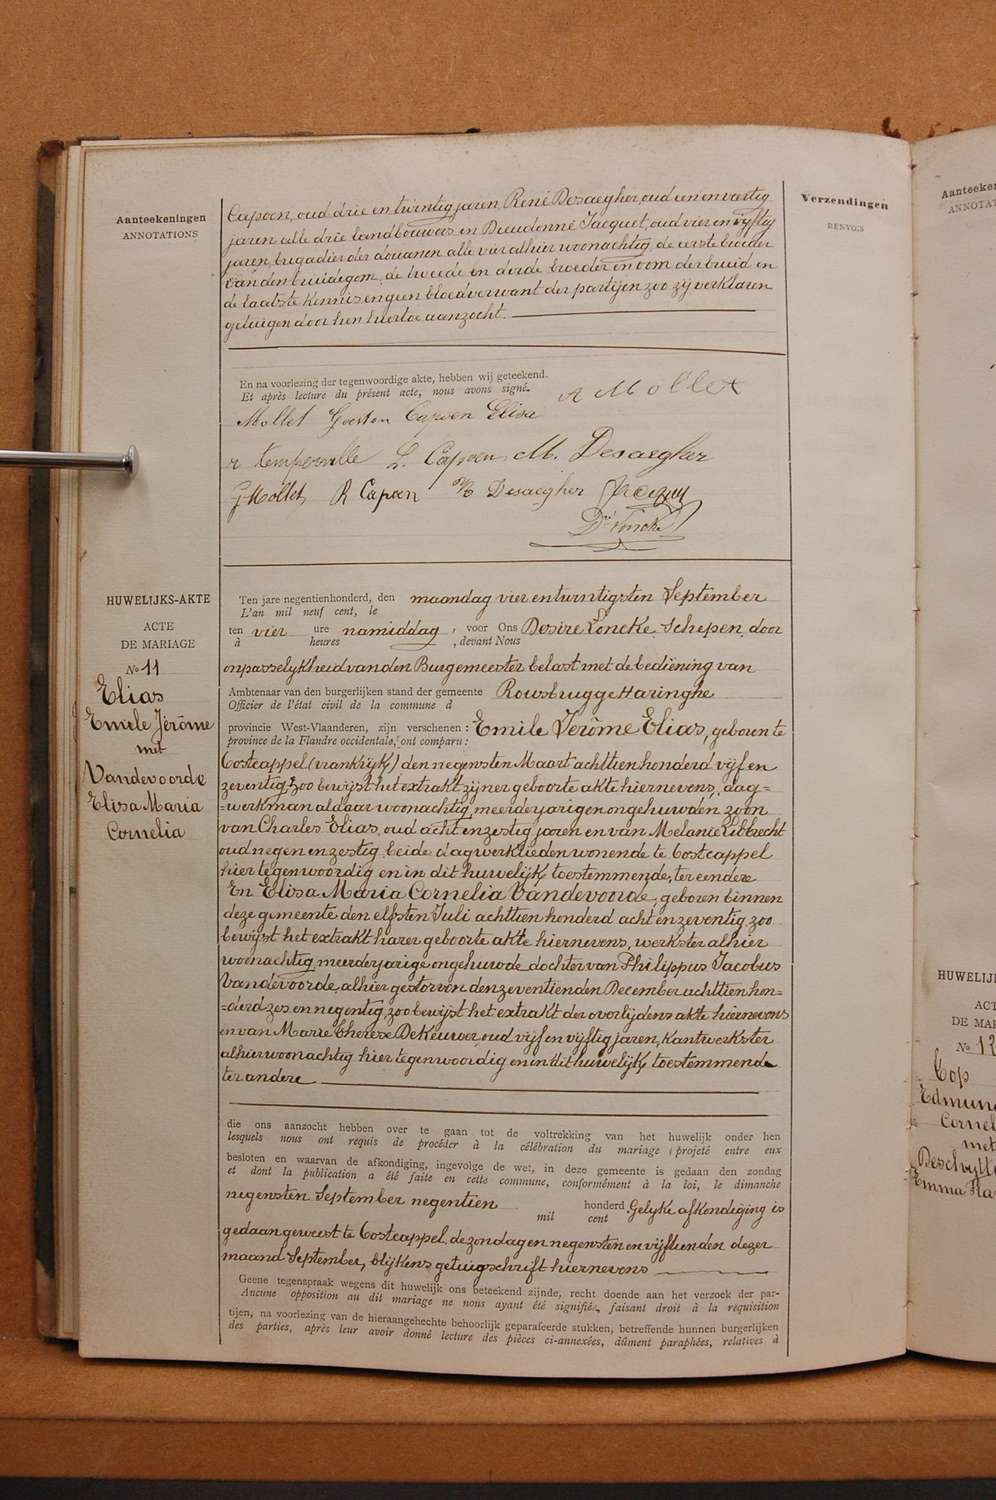 Aanteekeningen
ANNOTATIONS
Verzendingen
RENVOIS
Capoen, oud drie en twintig jaren, René Desaegher, oud een en veertig
jaren alle drie landbouwers en Dieudonné Jacquet, oud vier en vijftig
jaren, brigadier der douanen alle vier alhier woonachtig, de eerste broeder
van den bruidegom, de tweede en derde broeder en oom der bruid en
de laatste kennis en geen bloedverwant der partijen zoo zij verklaren
getuigen door hen hiertoe aanzocht.
En na voorlezing der tegenwoordige akte, hebben wij geteekend.
Et après lecture du présent acte, nous avons signé.
A Mollet
Mollet Gaston Capoen Elisa
L. Capoen M. Desaegher
G Mollet R Capoen R Desaegher
Ds Loncke
HUWELIJKS-AKTE
ACTE
DE MARIAGE
No 11
Elias
Emiele Jérôme
met
Vandevoorde
Elisa Maria
Cornelia
Ten jare negentienhonderd, den maandag vier en twintigsten September
L'an mil neuf cent, le
ten vier ure namiddag, voor Ons Desire Loncke, Schepen, door
à heures , devant Nous
onpasselijkheid van den Burgemeester belast met de bediening van
Ambtenaar van den burgerlijken stand der gemeente Rousbrugge Haringhe
Officier de l'état civil de la commune d
provincie West-Vlaanderen, zijn verschenen: Emile Jerôme Elias, geboren te
province de la Flandre occidentale, ont comparu:
Oostcappel (vrankrijk) den negensten Maart achttien honderd vijf en
zeventig, zoo bewijst het extrakt zijner geboorte akte hiernevens, dag-
=werkman aldaar woonachtig, meerderjarigen ongehuwden zoon
van Charles Elias, oud acht en zestig jaren en van Melanie Libbrecht
oud negen en zestig, beide dagwerklieden wonende te Oostcappel
hier tegenwoordig en in dit huwelijk toestemmende, ter eendere
En Elisa Maria Cornelia Vandevoorde, geboren binnen
deze gemeente den elfsten Juli achttien honderd acht en zeventig, zoo
bewijst het extrakt harer geboorte akte hiernevens, werkster alhier
woonachtig, meerderjarige ongehuwde dochter van Philippus Jacobus
Vandevoorde, alhier gestorven den zeventienden December achttien hon-
=derd zes en negentig, zoo bewijst het extrakt der overlijdens akte hiernevens
en van Marie Therese DeKeuwer oud vijf en vijftig jaren, Kantwerkster
alhier woonachtig hier tegenwoordig en in dit huwelijk toestemmende
ter andere
die ons aanzocht hebben over te gaan tot de voltrekking van het huwelijk onder hen
lesquels nous ont requis de procéder à la célébration du mariage projeté entre eux
besloten en waarvan de afkondiging, ingevolge de wet, in deze gemeente is gedaan den zondag
et dont la publication a été faite en cette commune, conformément à la loi, le dimanche
negensten September negentien honderd Gelijke afkondiging is
mil cent
gedaan geweest te Oostcappel, de zondagen negensten en vijftienden dezer
maand September, blijkens getuigschrift hiernevens
Geene tegenspraak wegens dit huwelijk ons beteekend zijnde, recht doende aan het verzoek der par-
Aucune opposition au dit mariage ne nous ayant été signifiée, faisant droit à la réquisition
tijen, na voorlezing van de hieraangehechte behoorlijk geparafeerde stukken, betreffende hunnen burgerlijken
des parties, après leur avoir donné lecture des pièces ci-annexées, dûment paraphées, relatives à
Aanteeken
ANNOTAT
HUWELIJK
ACT
DE MAR
No 12
Cop
Edmun
Cornel
met
Deschytt
Emma